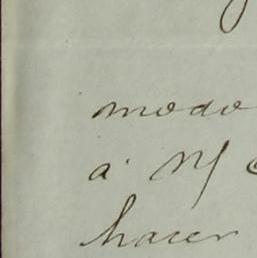 modo
á M
hacer